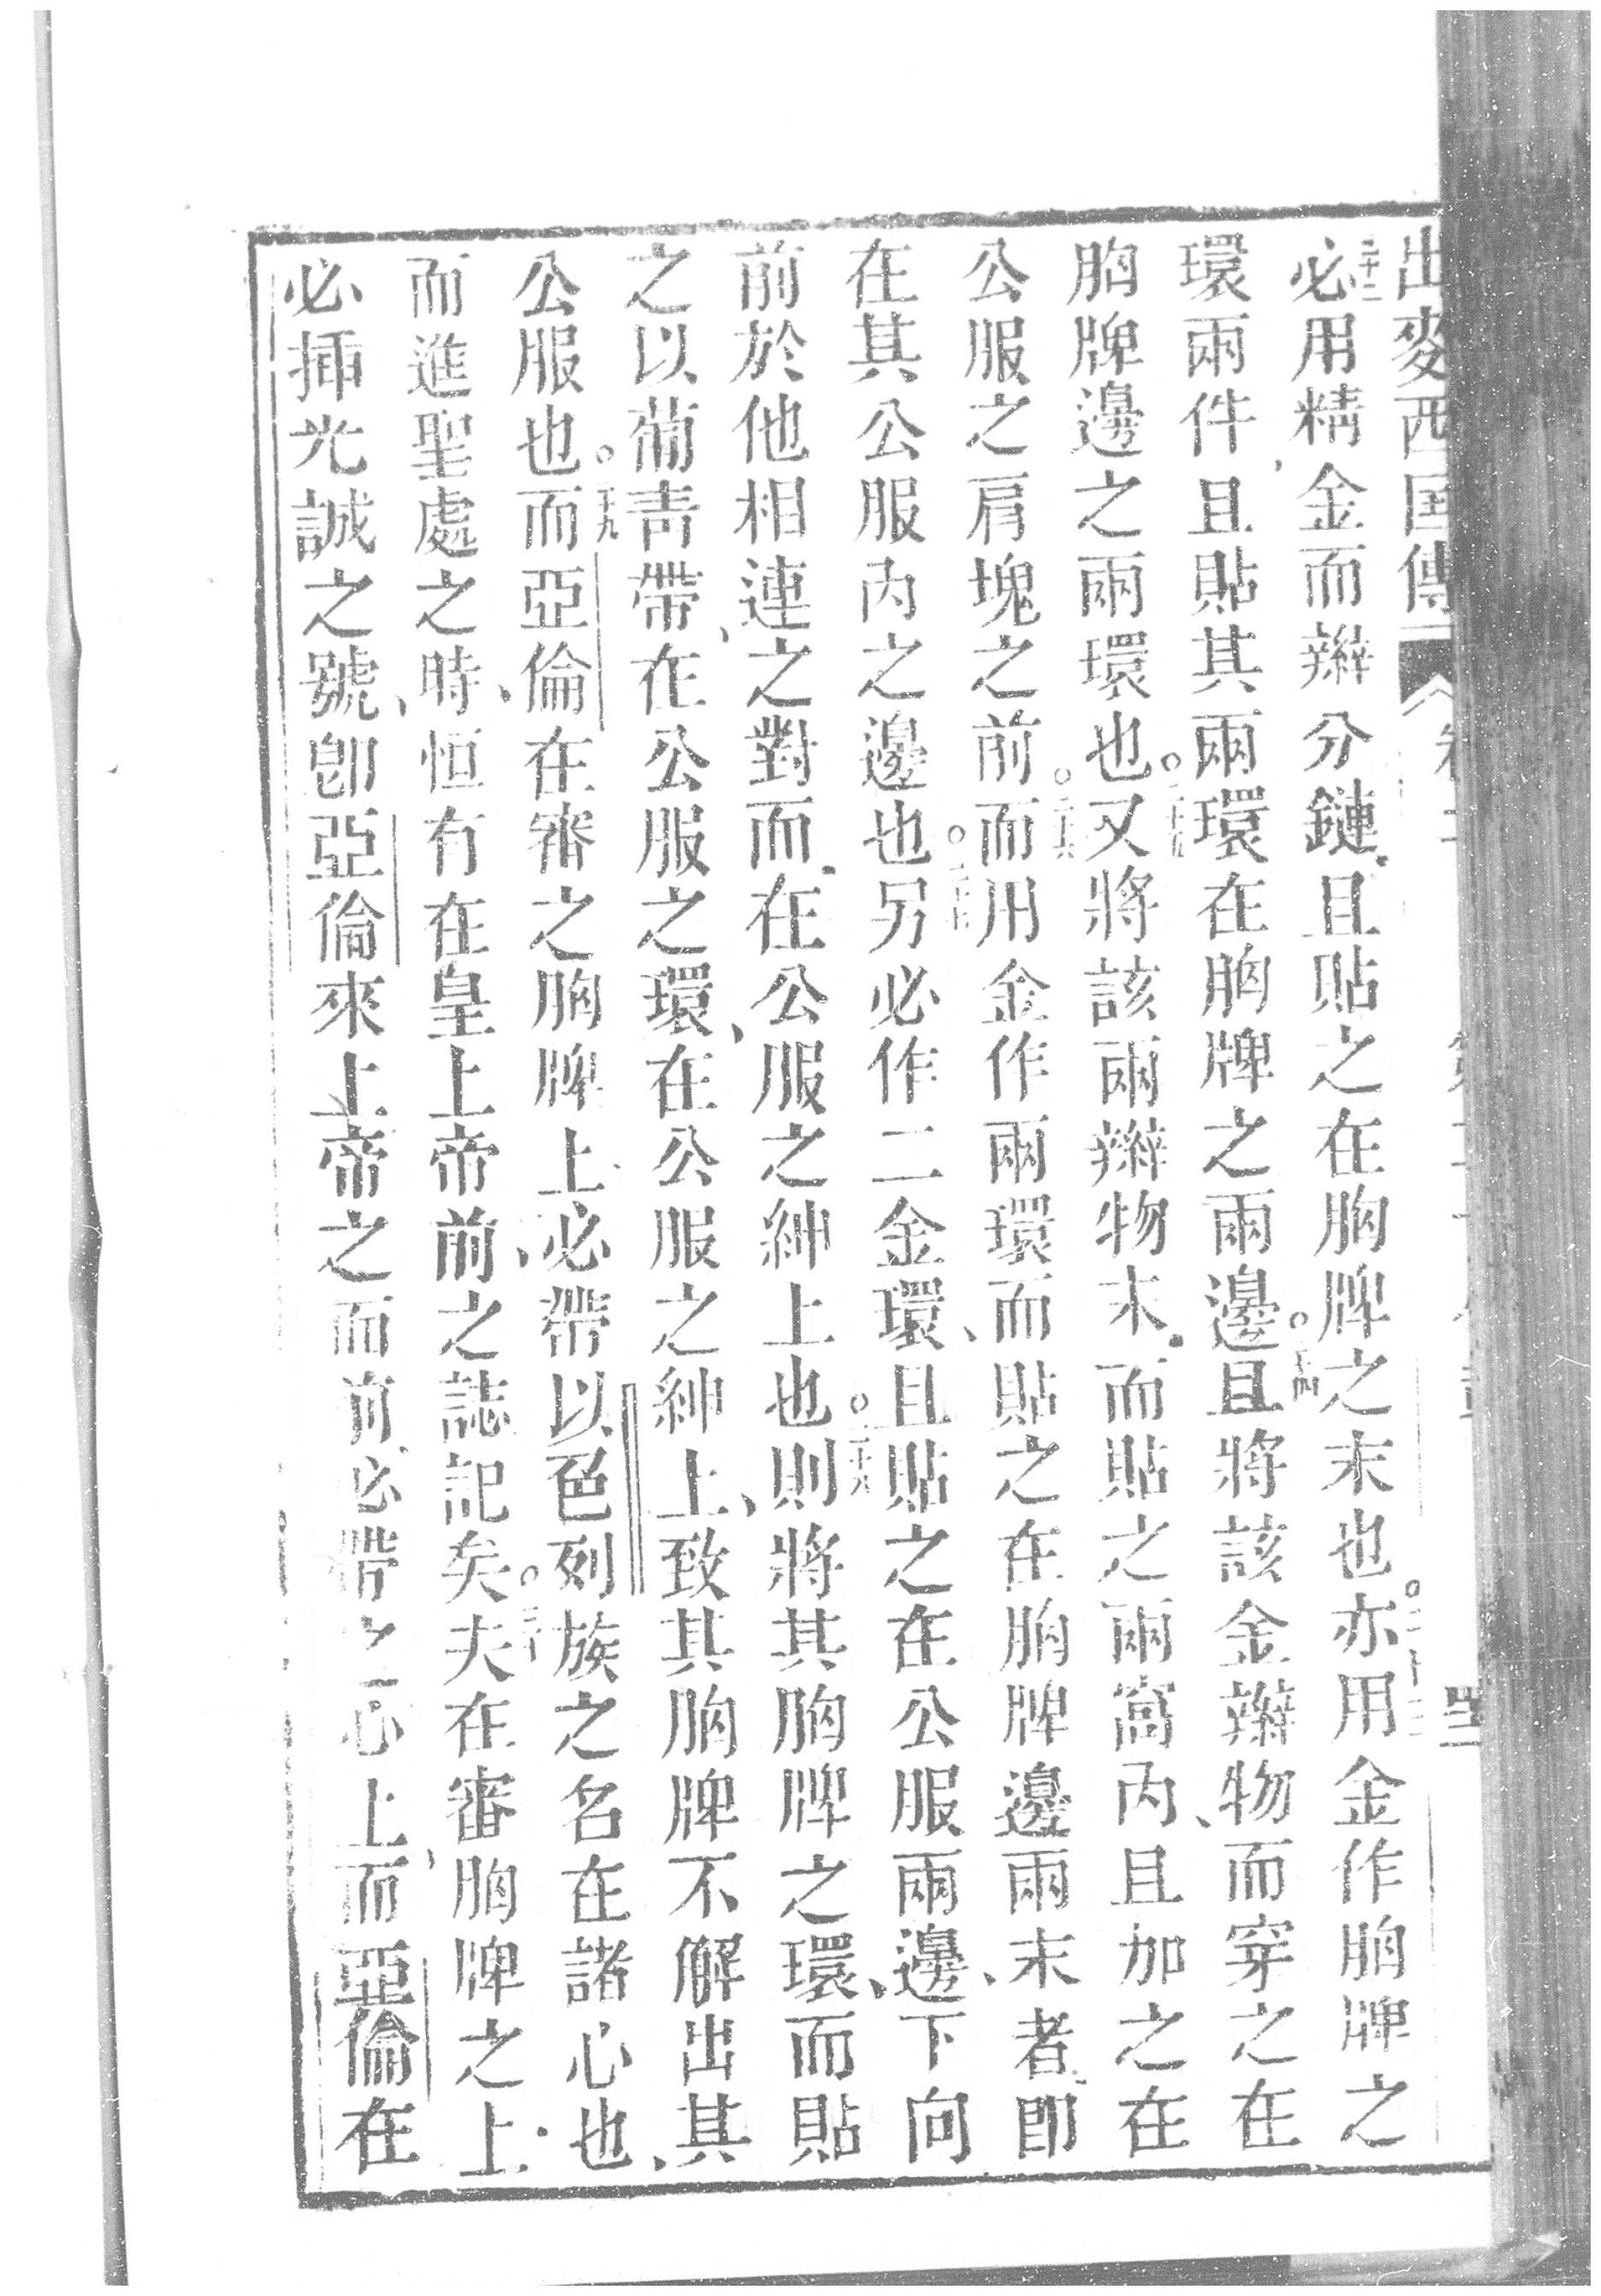 出麥西国傳
二十二必用精金而辮分鏈、且貼之在胸牌之末也。二十三亦用金作胸牌之
環兩件、且貼其兩環在胸牌之兩邊。二十四且將該金辮物、而穿之在
胸牌邊之兩環也。二十五又將該兩辮物末、而貼之兩窩內、且加之在
公服之肩塊之前。二十六而用金作兩環而貼之在胸牌邊兩末者、即
在其公服內之邊也。二十七另必作二金環、且貼之在公服兩邊、下向
前於他相連之對、而在公服之紳上也。二十八則將其胸牌之環、而貼
之以葡青帶、在公服之環、在公服之紳上、致其胸牌不解出其
公服也。二十九而亞倫在審之胸牌上、必帶以色列族之名在諸心也、
而進聖處之時、恒有在皇上帝前、之誌記矣。三十夫在審胸牌之上、
必揷光誠之號、卽亞倫來上帝之面前、必帶之心上、而亞倫在